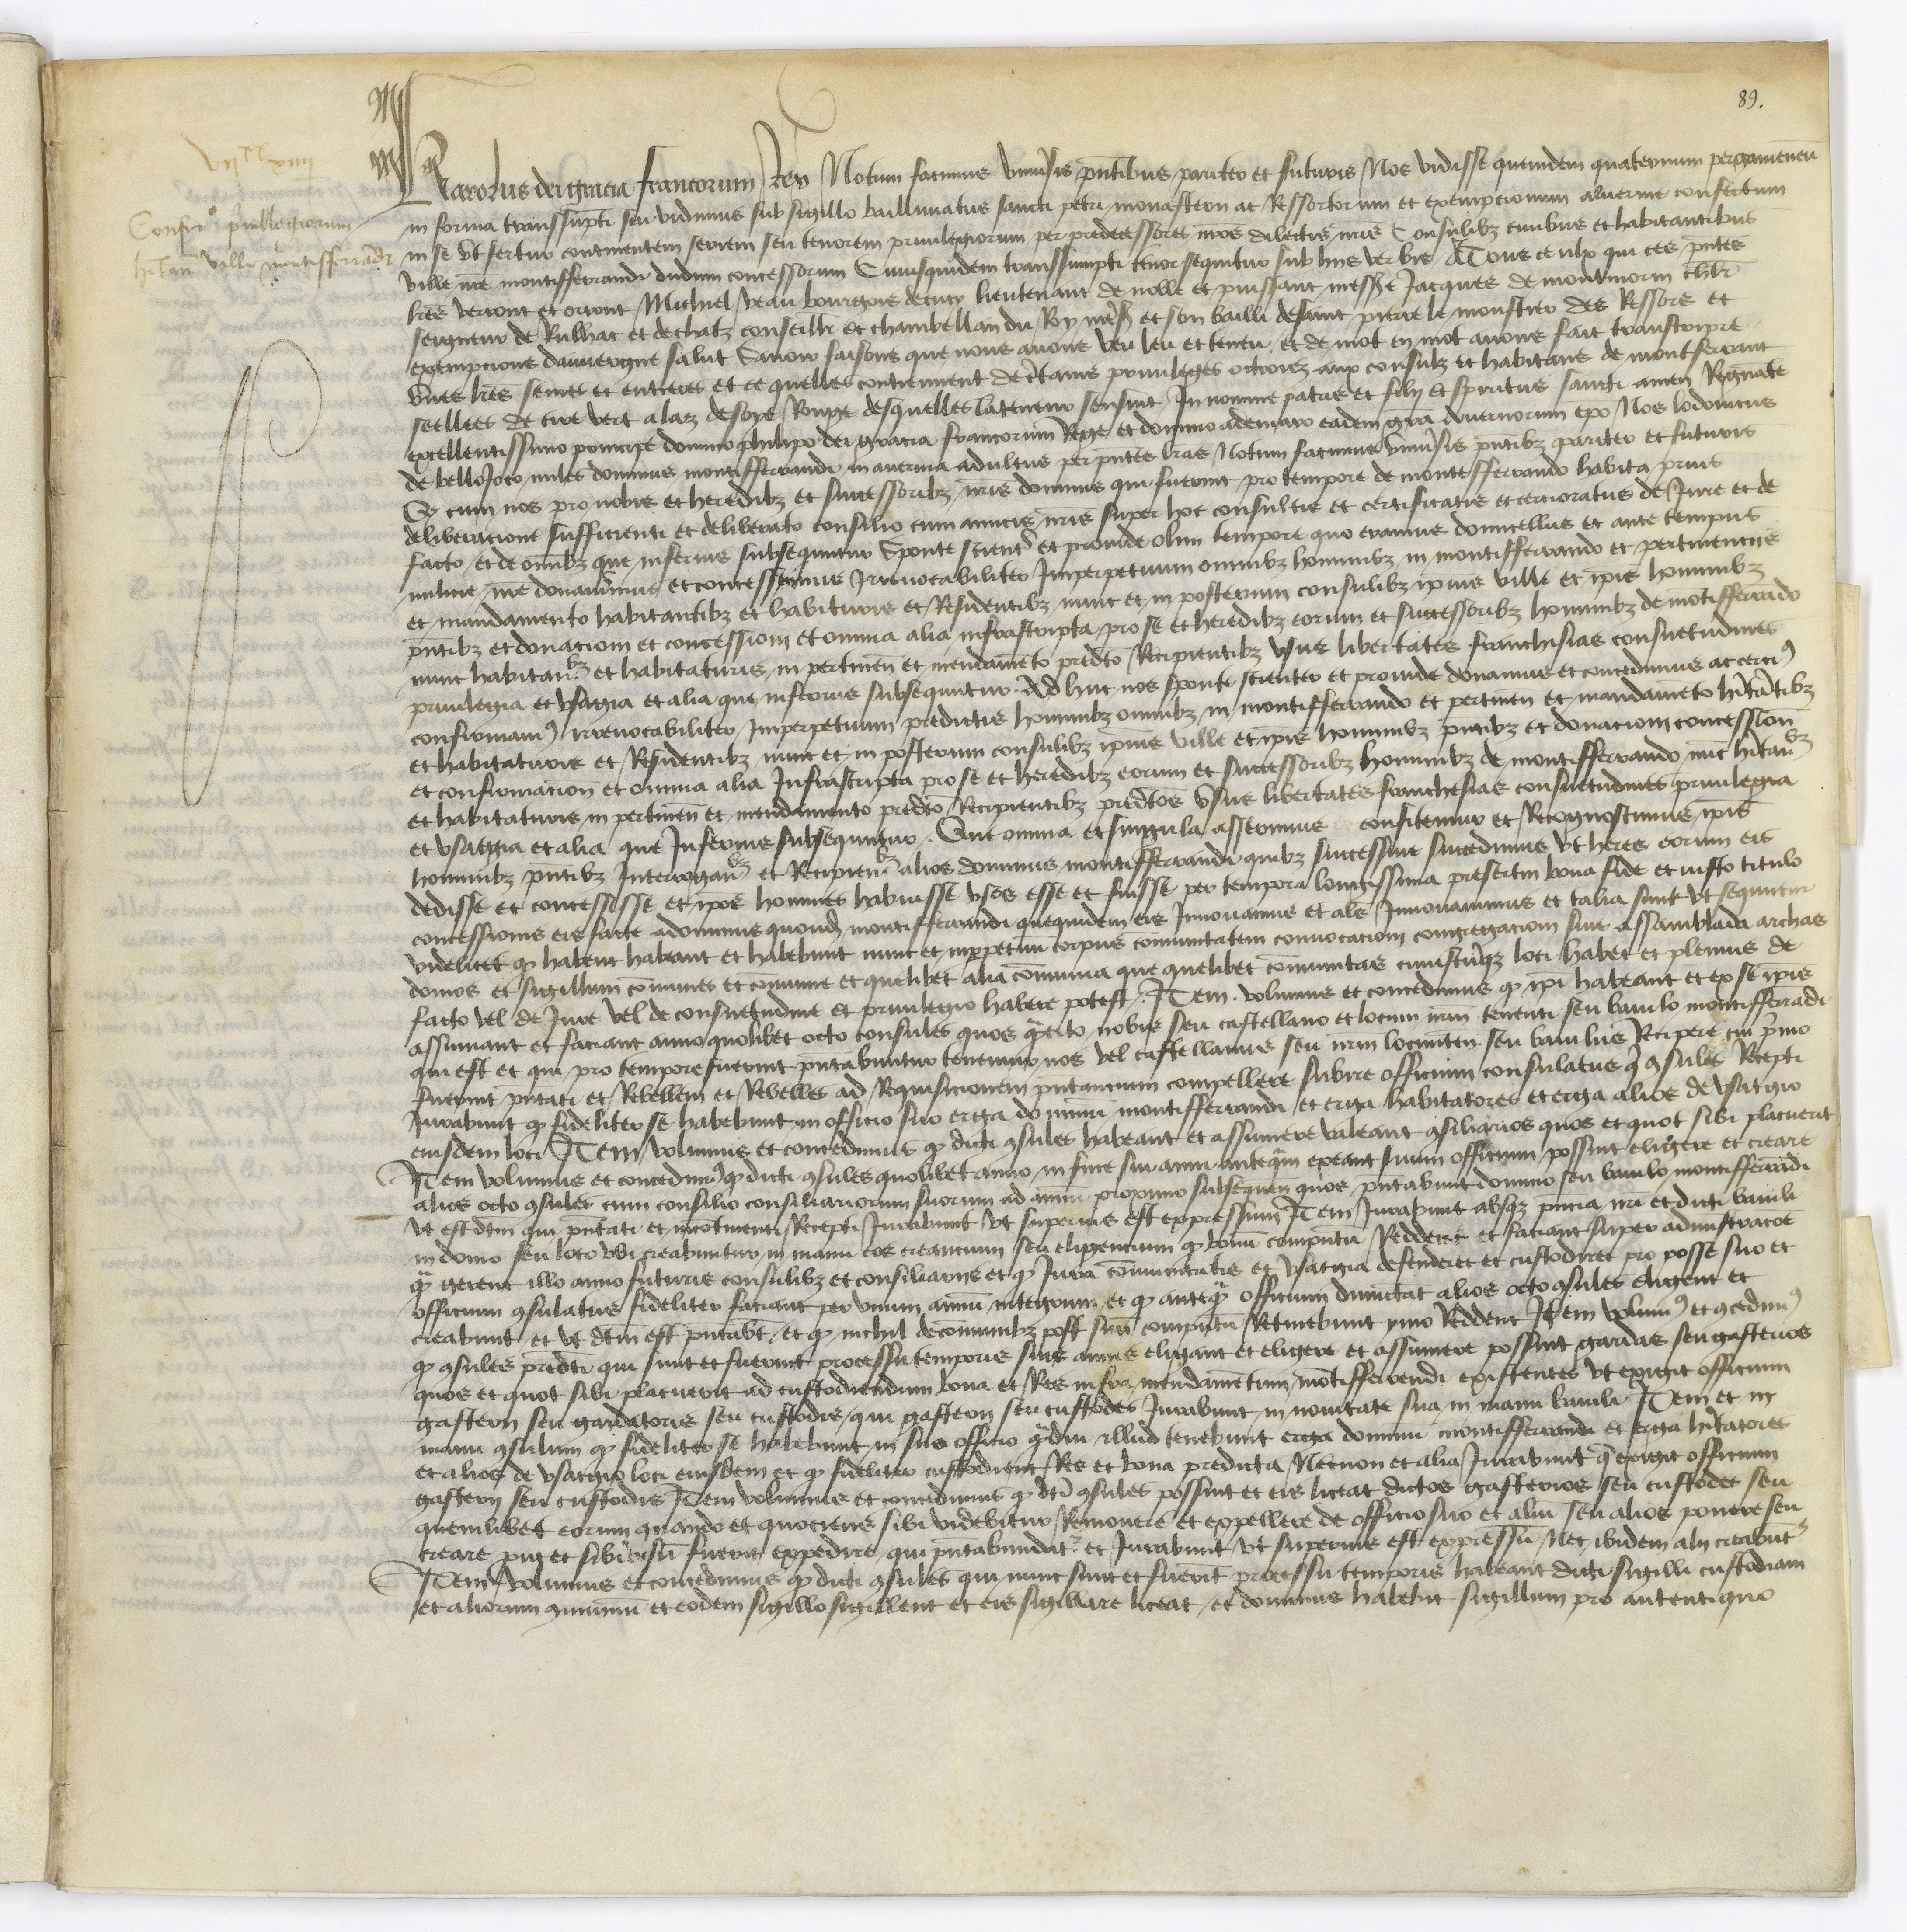 89.
VII^xx XIIII
Confir^o privillegiorum
hitan ville montisferrandi
Karolus dei gracia francorum Rex Notum facimus universis pntibus pariter et futuris Nos vidisse quemdem quaternum pergameneu
in forma transsupti seu vidimus sub sigillo baillivatus sancti petri monasterii ac Ressortorum et exempcionum alvernie confectum
in se vt fertur continentem seriem seu tenorem privilegiorum per predecessores nros dilectis nris Consulibz civibus et habitantibus
ville nre montisfferrandi dudum concessorum Cuiusquidem transsumpti tenor sequitur sub hiis verbis A Tous ceulx qui ces pntes
lres verront et orront Michiel veau bourgois de cucy lieutenant de noble et puissant messe Jacques de montmorin chlr
seigneur de Rilhac et de chatz conseillr et chambellan du Roy nres et son bailli de saint pierre le monstier des Ressors et
exempcions dauvergne salut Savoir faisons que nous avons veu leu et teneu et de mot en mot avons fait transcripre
vnes lres senies et entieres et ce quelles contiennent de ctains privileges octroiez aux consulz et habitans de montferrant
seellees de cire vert a laz de soye Rouge desquelles la teneur sensuit In nomine patris et filij et spiritus sancti amen Regnate
excellentissimo principe domino philipo dei gracia francorum Rege et domino ademaro eadem gra Avernorum epo Nos lodovicus
de bellojoco miles dominus montisfferrandi in avernia adultus per pntes lras Notum facimus vniusis pntibz pariter et futuris
Q cum nos pro nobis et heredibz et successoribz nris dominis qui fuerint pro tempore de montefferrando habita prius
deliberacione sufficienti et deliberato consilio cum amicis nris super hoc consultis et certificatis et certioratus de Jure et de
facto et de omibz que inferius subsequntur Sponte scientr et provide olim tempore quo eramus domicellus et ante tempus
milicie nre donavimus et concessimus Irrevocabiliter Imperpetuum omnibz hominibz in montifferrando et pertinenciis
et mandamento habitantibz et habituris et Residentibz nunc et in posterum consulibz ipius ville et ipis hominibz
pntibz et donaciom et concessiom et omnia alia infrascripta pro se et heredibz eorum et successoribz hominibz de motifferrado
nunc habitanbz et habitaturis in pertinen et mendameto predto Recipientibz vsus libertates franchisias consuetudines
privilegia et vsagia et alia que inferius subsequntur Ad huc nos sponte scienter et provide donamus et concedimus ac cerci9
confirmam9 irrevocabiliter Imperpetuum predictis hominibz omibz in montifferrando et pertinen et mandameto hitatibz
et habitaturis et Residentibz nunc et in posterum consulibz ipius ville et ipis hominibz pntibz et donaciom concession
et confirmacion et omnia alia Infrascripta pro se et heredibz eorum et successoribz hominibz de montifferrando nuc hitanbz
et habitaturis in pertinen et mendamento predto Recipientibz predtos vsus libertates franchesias consuetudines privilegia
et vsagia et alia que Inferius subsequntur. Que omnia et singula asserimus confitemur et Recognoscimus ipis
hominibz pntibz Interroganbz et Recipienbz alios dominus montisfferrandi quibz successim succedimus vt heres eorum eis
dedisse et concessisse et ipos homines habuisse vsos esse et fuisse per tempora longissima presertim bona fide et iusto titulo
concessionis eis facte a dominis quond montisfferrandi quequidem eis Innovamus et als Innovavimus et talia sunt vt sequntur
videlicet q habent habeant et habebunt nunc et inppetuu corpus comunitatem convocaciom congregaciom sive assemblada archas
domos et sigillum comunes et comune et quelibet alia comunia que quelibet comunitas cuiuscuqz loci habet et plenius de
facto vel de Jure vel de consuetudine et privilegio habere potest. Item volumus et concedimus q ipi habeant et ex se ipis
assumant et faciant anno quolibet octo consules quos qcito nobis seu castellano et locum nrm tenenti seu bavilo montifferradi
qui est et qui pro tempore fuerint pntabuntur tenemur nos vel castellanus seu nrm locumten seu bavilus Recipere cui primo
fuerint pntati et Rebellem et Rebelles ad Requisicionem pntancium compellere subire officium consulatus q 9sules Recepti
Jurabunt q fideliter se habebunt in officio suo erga dominu montisfferrandi et erga habitatores et erga alios de vsatgio
eiusdem loci Item volumus et concedimus q dicti 9sules habeant et assumere valeant 9siliarios quos et quot sibi placuerit
Item volumus et concedim9 q dicti 9sules quolibet anno in fine sui anni anteqm exeant suum officium possint eligere et creare
alios octo 9sules cum consilio consiliariorum suorum ad annu proximo subsequen quos pntabunt domino seu bavilo montifferradi
vt est dtm qui pntati et Recepti Jurabunt vt superius est expressum Item Jurabunt absqz pncia nra et dicti bavili
in domo seu loco vbi creabuntur in manu eos creancium seu eligencium q bonu computu Reddent et faciant super admistracoe
qm gerent illo anno futuris consulibz et consiliariis et q Jura comunitatis et vsatgia defendent et custodient pro posse suo et
officium 9sulatus fideliter faciant per vnum annu integrum et q anteqm officium dimittat alios octo 9sules eligent et
creabunt et vt dtm est pntabt et q nichil de comunibz post suu computu Retinebunt ymo Reddent Item volum9 et 9cedim9
q 9sules predti qui sunt et fuerint processu temporis suis annis eligant et eligere et assumere possint gardas seu gasterios
quos et quot sibi placuerit ad custodiendum bona et Res infra mendamentum montifferrendi existentes vt exigit officium
gasterii seu gardatoris seu custodis qui gasterii seu custodes Jurabunt in novitate sua in manu bavili Item et in
manu 9sulum q fideliter se habebunt in suo officio qdiu illud tenebunt erga dominu montisfferrandi et erga hitatores
et alios de vsatgio loci eiusdem et q fideliter custodient Res et bona predicta Necnon et alia Jurabunt q exigit officium
gasterii seu custodis Item volumus et concedimus q dti 9sules possint et eis liceat dictos gasterios seu custodes seu
quemlibet eorum quando et quociens sibi videbitur Removere et expellere de officio suo et aliu seu alios ponere seu
creare put et sibi visu fuerit expedire qui pntabunt et Jurabunt vt superius est expressu Nec ibidem alii creabut
Item volumus et concedimus q dicti 9sules qui nunc sunt et fuerit processu temporis habeant dicti sigilli custodiam
et aliorum 9muniu et eodem sigillo sigillent et eis sigillare liceat et dominus habebit sigillum pro autentiquo